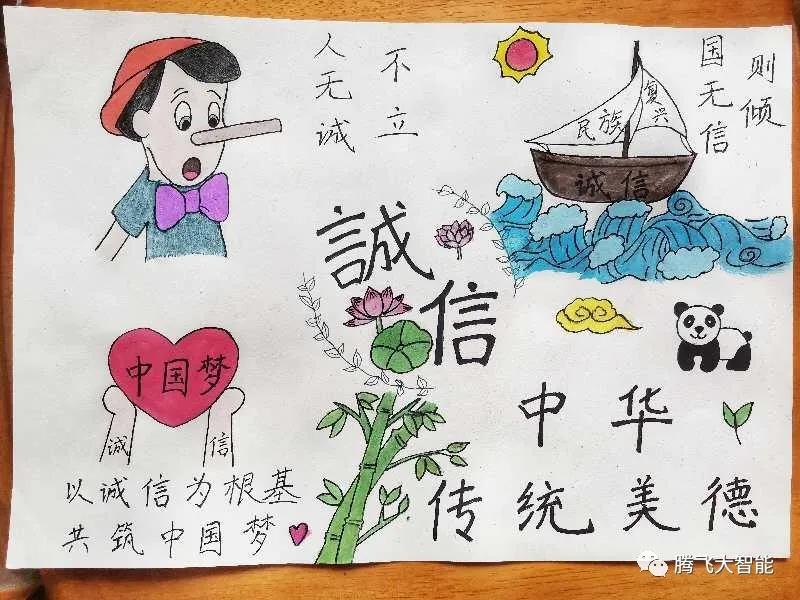 人无诚
不立
国无信
则倾
民族
复兴
诚信
誠信
中国梦
诚
信
以诚信为根基
共筑中国梦
中华
传统美德
腾飞大智能